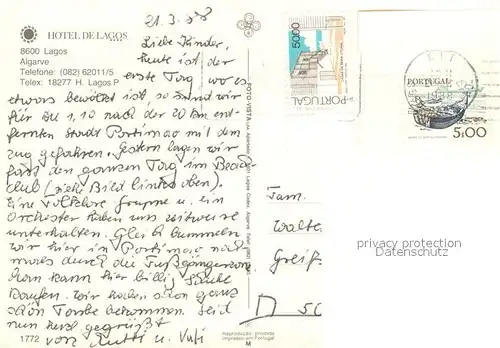 HOTEL DE LAGOS
8600 Lagos
Algarve
Telefone: (082) 62011/5
Telex: 18277 H. Lagos P
21.3.88
Liebe Kinder,
heute ist der
erste Tag, wo es
etwas bewölkt ist, so sind wir
für DM 1,10 nach der 20 km ent-
fernten Stadt Portimao mit dem
Zug gefahren. Gestern lagen wir
fast den ganzen Tag im Beach-
club (siehe Bild links oben).
Eine Volklore Gruppe u. ein
Orchester haben uns zeitweise
unterhalten. Gleich bummeln
wir hier in Portimao noch
mals durch die Fußgängerzone
Man kann hier billig Schuhe
kaufen. Wir haben schon ganz
schön Farbe bekommen. Seid
nun herzl. gegrüßt
von Mutti u. Vati
1772
FOTO-VISTA
5000
PORTUGAL
PORTUGAL
5.00
Fam.
Walte
Greif
D 50
privacy protection
Datenschutz
Reprodução proibida
Impresso em Portugal
M